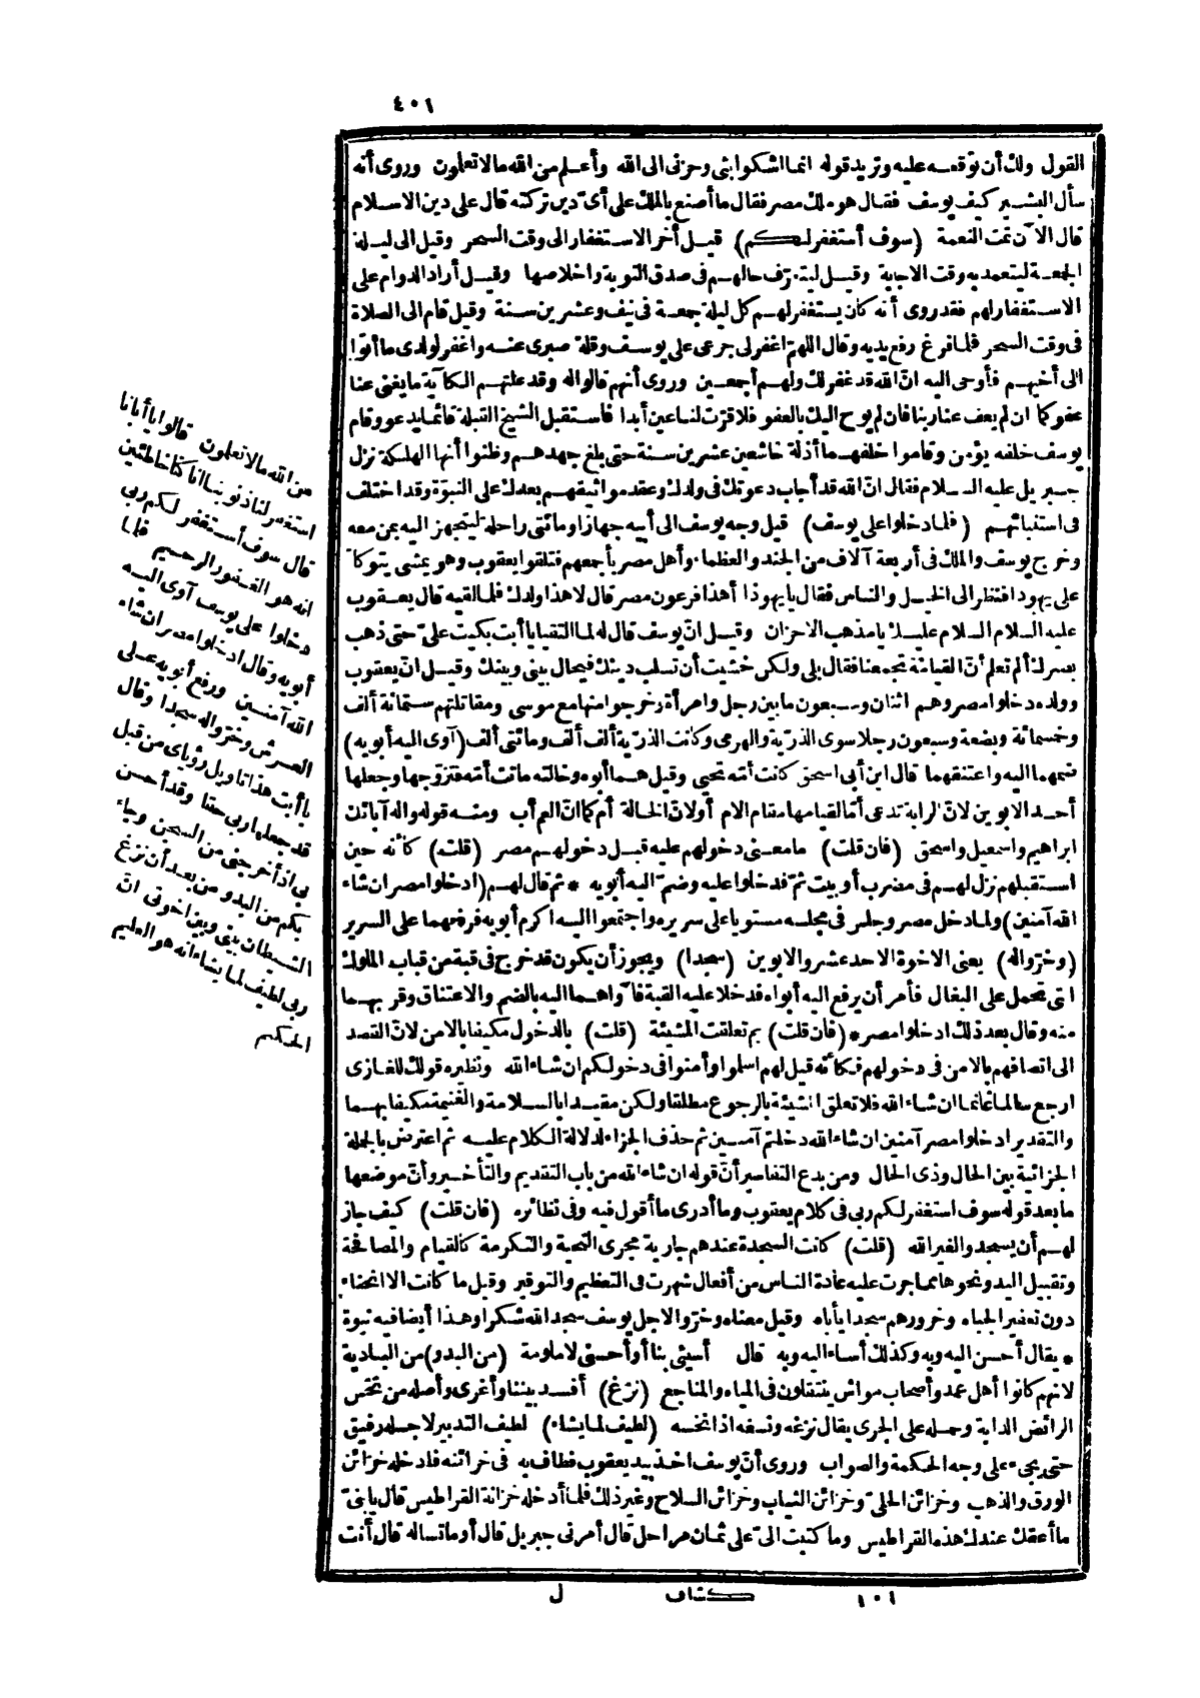 ٤٠١
القول ولك أن توقعه عليه وتريد قوله انما اشكوا بثى وحزنى الى الله وأعلم من الله مالا تعلمون وروى أنه
سأل البشير كيف يوسف فقال هو ملك مصر فقال ما أصنع بالملك على أى دين تركته قال على دين الاسلام
قال الآن تمت النعمة (سوف أستغفر لكم) قيل أخر الاستغفار الى وقت السحر وقيل الى ليلة
الجمعة ليتعمد به وقت الاجابة وقيل ليتعرف حالهم فى صدق التوبة واخلاصها وقيل أراد الدوام على
الاستغفار لهم فقد روى أنه كان يستغفر لهم كل ليلة جمعة فى نيف وعشرين سنة وقيل قام الى الصلاة
فى وقت السحر فلما فرغ رفع يديه وقال اللهم اغفر لى جزعى على يوسف وقلة صبرى عنه واغفر لولدى ما أتوا
الى أخيهم فأوحى اليه ان الله قد غفر لك ولهم أجمعين وروى أنهم قالوا له وقد علتهم الكآبة ما يغنى عنا
عفوكما ان لم يعف عنا ربنا فان لم يوح اليك بالعفو فلا قرت لنا عين أبدا فاستقبل الشيخ القبلة قائما يدعو وقام
يوسف خلفه يؤمن وقاموا خلفهما أذلة خاشعين عشرين سنة حتى بلغ جهدهم وظنوا أنها الهلكة نزل
جبريل عليه السلام فقال ان الله قد أجاب دعوتك فى ولدك وعقد مواثيقهم بعدك على النبوة وقد اختلف
فى استنبائهم (فلما دخلوا على يوسف) قيل وجه يوسف الى أبيه جهازا ومائتى راحلة ليتجهز اليه بمن معه
وخرج يوسف والملك فى أربعة آلاف من الجند والعظماء وأهل مصر بأجمعهم فتلقوا يعقوب وهو يمشى يتوكأ
على يهودا فنظر الى الخيل والناس فقال يا يهوذا أهذا فرعون مصر قال لا هذا ولدك فلما لقيه قال يعقوب
عليه السلام السلام عليك يا مذهب الاحزان وقيل ان يوسف قال له لما التقيا يا أبت بكيت على حتى ذهب
بصرك ألم تعلم أن القيامة تجمعنا فقال بلى ولكن خشيت أن تسلب دينك فيحال بينى وبينك وقيل ان يعقوب
وولده دخلوا مصر وهم اثنان وسبعون ما بين رجل وامرأة وخرجوا منها مع موسى ومقاتلتهم ستمائة ألف
وخمسمائة وبضعة وسبعون رجلا سوى الذرية والهرمى وكانت الذرية ألف ألف ومائتى ألف (آوى اليه أبويه)
ضمهما اليه واعتنقهما قال ابن أبى اسحق كانت أمه تحيى وقيل هما أبوه وخالته ماتت أمه فتزوجها وجعلها
أحد الابوين لان الرابة تدعى أما لقيامها مقام الام أو لان الخالة أم كما ان العم أب ومنه قوله واله آبائك
ابراهيم واسمعيل واسحق (فان قلت) ما معنى دخولهم عليه قبل دخولهم مصر (قلت) كأنه حين
استقبلهم نزل لهم فى مضرب أو بيت ثم فدخلوا عليه وضم اليه أبويه * ثم قال لهم (ادخلوا مصر ان شاء
الله آمنين) ولما دخل مصر وجلس فى مجلسه مستويا على سريره واجتمعوا اليه أكرم أبويه فرفعهما على السرير
(وخروا له) يعنى الاخوة الاحد عشر والابوين (سجدا) ويجوز أن يكون قد خرج فى قبة من قباب الملوك
التى تحمل على البغال فأمر أن يرفع اليه أبواه فدخلا عليه القبة فآواهما اليه بالضم والاعتناق وقربهما
منه وقال بعد ذلك ادخلوا مصر * (فان قلت) بم تعلقت المشيئة (قلت) بالدخول مكيفا بالامن لان القصد
الى اتصافهم بالامن فى دخولهم فكأنه قيل لهم اسلموا وأمنوا فى دخولكم ان شاء الله ونظيره قولك للغازى
ارجع سالما غانما ان شاء الله فلا تعلق المشيئة بالرجوع مطلقا ولكن مقيدا بالسلامة والغنيمة مكيفا بهما
والتقدير ادخلوا مصر آمنين ان شاء الله دخلتم آمنين ثم حذف الجزاء لدلالة الكلام عليه ثم اعترض بالجملة
الجزائية بين الحال وذى الحال ومن بدع التفاسير أن قوله ان شاء الله من باب التقديم والتأخير وأن موضعها
ما بعد قوله سوف استغفر لكم ربى فى كلام يعقوب وما أدرى ما أقول فيه وفى نظائره (فان قلت) كيف جاز
لهم أن يسجدوا لغير الله (قلت) كانت السجدة عندهم جارية مجرى التحية والتكرمة كالقيام والمصافحة
وتقبيل اليد ونحوها مما جرت عليه عادة الناس من أفعال شهرت فى التعظيم والتوقير وقيل ما كانت الا انحناء
دون تعفير الجباه وخرورهم سجدا يأباه وقيل معناه وخروا لاجل يوسف سجدا لله شكرا وهذا أيضا فيه نبوة
* يقال أحسن اليه وبه وكذلك أساء اليه وبه قال أسيئى بنا أو أحسنى لا ملومة (من البدو) من البادية
لانهم كانوا أهل عمد وأصحاب مواش ينتقلون فى المياه والمناجع (نزغ) أفسد بيننا وأغرى وأصله من نخس
الرائض الدابة وحمله على الجرى يقال نزغه ونسغه اذا نخسه (لطيف لما يشاء) لطيف التدبير لاجله رفيق
حتى يجىء على وجه الحكمة والصواب وروى أن يوسف أخذ بيد يعقوب فطاف به فى خزائنه فادخله خزائن
الورق والذهب وخزائن الحلى وخزائن الثياب وخزائن السلاح وغير ذلك فلما أدخله خزانة القراطيس قال يا بنى
ما أعقك عندك هذه القراطيس وما كتبت الى على ثمان مراحل قال أمرنى جبريل قال أوما تسأله قال أنت
من الله مالا تعلمون قالوا يا أبانا
استغفر لنا ذنوبنا انا كنا خاطئين
قال سوف أستغفر لكم ربى
انه هو الغفور الرحيم فلما
دخلوا على يوسف آوى اليه
أبويه وقال ادخلوا مصر ان شاء
الله آمنين ورفع أبويه على
العرش وخروا له سجدا وقال
يا أبت هذا تاويل رؤياى من قبل
قد جعلها ربى حقا وقد أحسن
بى اذ أخرجنى من السجن وجاء
بكم من البدو من بعد أن نزغ
الشيطان بينى وبين اخوتى ان
ربى لطيف لما يشاء انه هو العليم
الحكيم
١٠١ كشاف ل